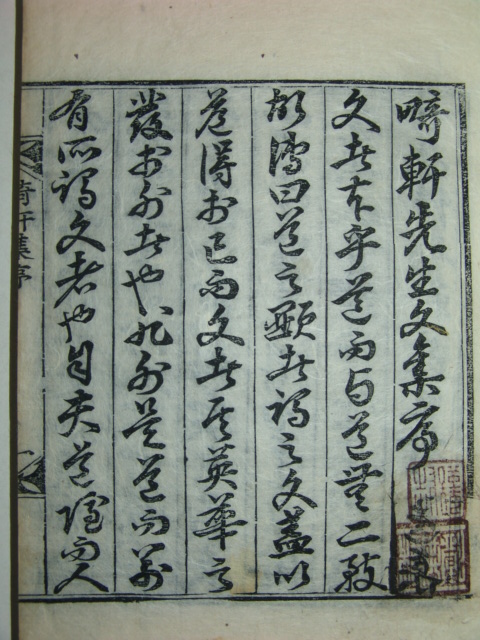 畸軒先生文集序
文者本乎道而与道無二致
故傳曰道之顯者謂之文蓋以
道得於己而文者其英華之
發於外者也非外是道而別
有所謂文者也自夫道隱而人
畸軒集序
一